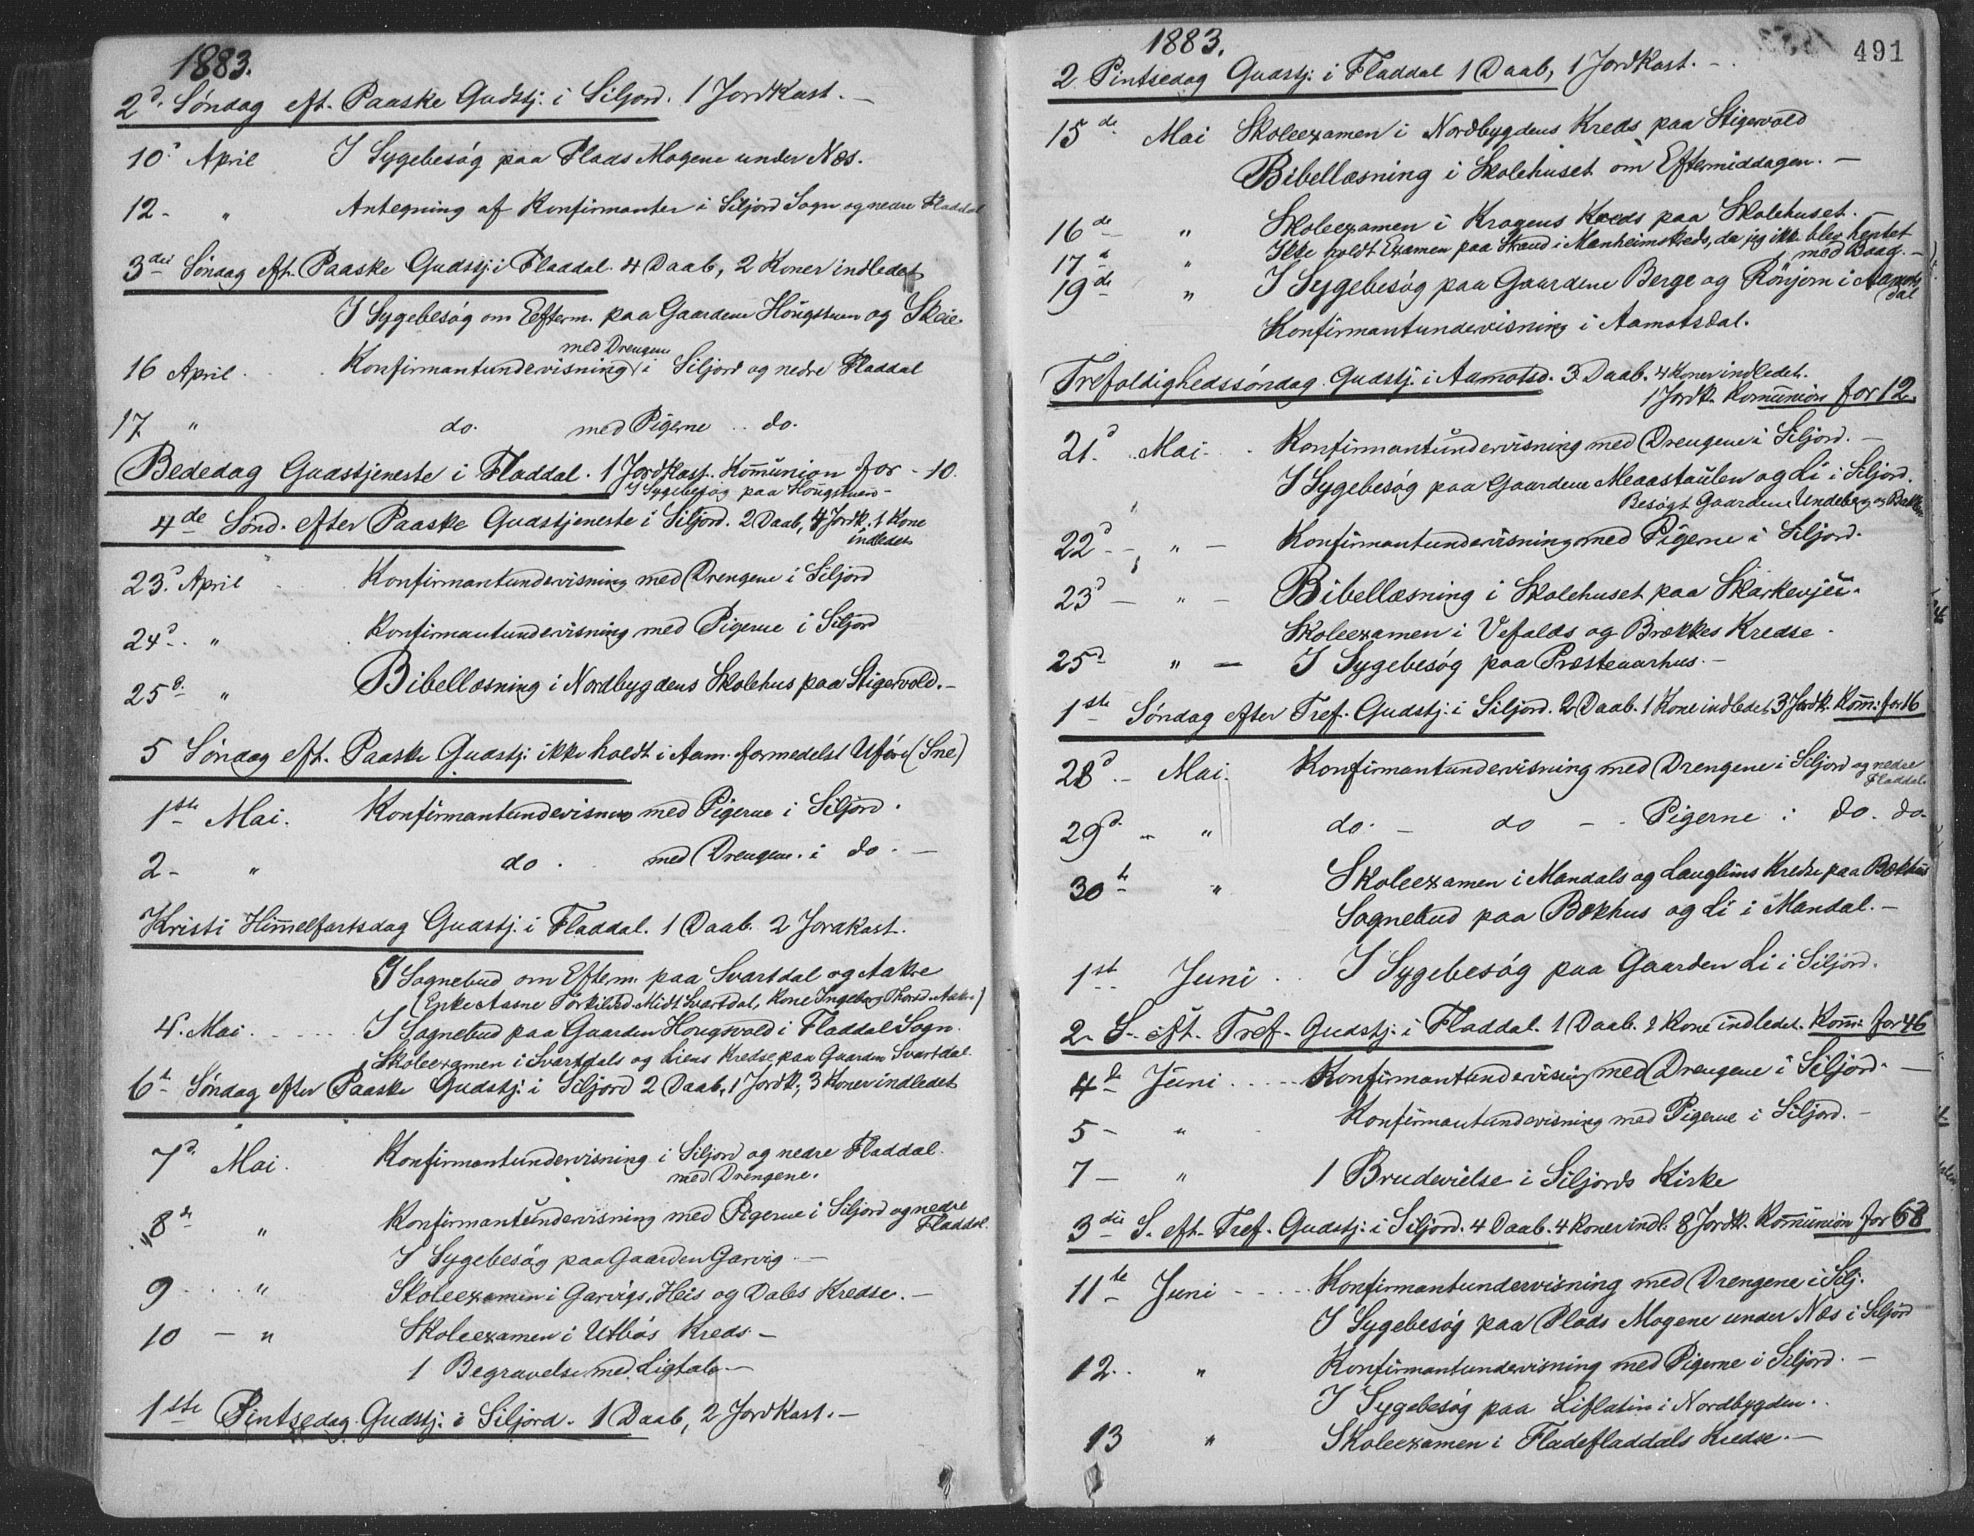 1883.
2d. Søndag eft. Paaske Gudstj. i Siljord. 1 Jordkast. —
10d April I Sygebesøg paa Plads Mogene under Næs.
12 - " Antegning af Konfirmanter i Siljord Sogn og nedre Fladdal
3die Søndag eft. Paaske Gudstj. i Fladdal. 4 Daab, 2 Koner indledet
I Sygebesøg om Efterm. paa Gaardene Hougstuen og Skeie.
med Drengene
16 April. Konfirmantundervisning i Siljord og nedre Fladdal
17 " do. med Pigerne .. do.
Bededag Gudstjeneste i Fladdal. 1 Jordkast. Kommunion for - 10.
I Sygebesøg paa Hougstuen -
4de Sønd. efter Paaske Gudstjeneste i Siljord. 2 Daab, 4 Jordk. 1 Kone
indledet
23d. April Konfirmantundervisning med Drengene i Siljord
24d. " Konfirmantundervisning med Pigerne i Siljord
25d. " Bibellæsning i Nordbygdens Skolehus paa Stigervold. -
5 Søndag eft. Paaske Gudstj. ikke holdt i Aam. formedelst Uføre (Sne)
1ste Mai. Konfirmantundervisning med Pigerne i Siljord.
2 - " do. med Drengene. i do. —
Kristi Himmelfartsdag Gudstj. i Fladdal. 1 Daab. 2 Jordkast.
I Sognebud om Efterm. paa Svartdal og Aakre
(Enke Aasne Torkilsd. Midt Svartdal, Kone Ingeborg Thorsd. Aakre)
4. Mai. I Sognebud paa Gaarden Hougsvold i Fladdal Sogn.
Skoleexamen i Svartdals og Liens Kredse paa Gaarden Svartdal.
6t Søndag efter Paaske Gudstj. i Siljord 2 Daab, 1 Jordk, 3 Koner indledet
7d. Mai. Konfirmantundervisning i Siljord og nedre Fladdal.
med Drengene.
8de " Konfirmantundervisning med Pigerne i Siljord og nedre
Fladdal.
I Sygebesøg paa Gaarden Garvig. —
9 " Skoleexamen i Garvigs, Heis og Dales Kredse. —
10 — " Skoleexamen i Utbøs Kreds. —
1 Begravelse med Ligtale —
1ste Pintsedag. Gudstj. i Siljord. 1 Daab, 2 Jordkast. —
1883.
491
2 Pintsedag Gudstj. i Fladdal 1 Daab, 1 Jordkast. -
15de Mai Skoleexamen i Nordbygdens Kreds paa Stigervold
Bibellæsning i Skolehuset om Eftermiddagen. —
16de " Skoleexamen i Kragens Kreds paa Skolehuset.
17d " Ikke holdt Examen paa Strand i Manheimskreds, da jeg ikke blev hentet
med Baad. —
19de " I Sygebesøg paa Gaardene Berge og Rønjom i Aamots
dal
Konfirmantundervisning i Aamotsdal.
Trefoldighedssøndag Gudstj. i Aamotsd. 3 Daab. 4 Koner indledet.
1 Jordk. Kommunion for 12.
21d. Mai Konfirmantundervisning med Drengene i Siljord. —
I Sygebesøg paa Gaardene Meaastaulen og Li i Siljord.
Besøgt Gaardene Undeberg og Bakken
22d - " — Konfirmantundervisning med Pigerne i Siljord.
23d — " — Bibellæsning i Skolehuset paa Skarkevju.
Skoleexamen i Vefalds og Brækkes Kredse.
25d " — I Sygebesøg paa Præsteaarhus. —
1ste Søndag efter Tref. Gudstj. i Siljord. 2 Daab. 1 Kone indledet, 3 Jordk. Komm. for 16
28d. - Mai. Konfirmantundervisning med Drengene i Siljord og nedre
Fladdal.
29d. - " do. — do — Pigerne i do. do.
30te " Skoleexamen i Mandals og Lauglims Kredse paa Bækhus
Sognebud paa Bækhus og Li i Mandal. —
1ste Juni. I Sygebesøg paa Gaarden Li i Siljord.
2. S. eft. Tref. Gudstj. i Fladdal. 1 Daab. 2 Kone indledet. Komm. for 46
4de Juni Konfirmantundervisning med Drengene i Siljord. —
5 — " Konfirmantundervisning med Pigerne i Siljord. —
7 — " 1 Brudevielse i Siljords Kirke
3die S. eft. Tref. Gudstj. i Siljord. 4 Daab. 4 Koner indl. 8 Jordk. Kommunion for 68
11te Juni Konfirmantundervisning med Drengene i Silj.
I Sygebesøg paa Plads Mogene under Næs i Siljord
12. " Konfirmantundervisning med Pigerne i Siljord. —
I Sygebesøg paa Liflatin i Nordbygden.
13 " Skoleexamen i Fladefladdals Kredse. —